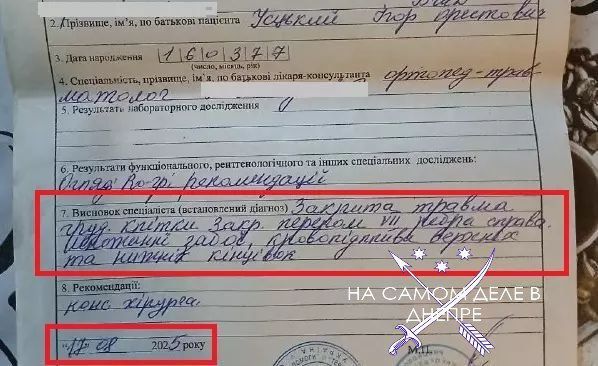 2. Прізвище, ім'я, по батькові пацієнта Усцький Ігор Орестович
3. Дата народження 1 6 0 3 7 7
(число, місяць, рік)
4. Спеціальність, прізвище, ім'я, по батькові лікаря-консультанта ортопед-трав
матолог
5. Результати лабораторного дослідження
6. Результати функціонального, рентгенологічного та інших спеціальних досліджень:
Огляд Ro-грі рекомендацій
7. Висновок спеціаліста (встановлений діагноз) Закрита травма
груд. клітки Закр. перелом VII ребра справа.
забої, кровопідпливи верхніх
та нижніх кінцівок
8. Рекомендації:
конс хірурга.
"17" 08 2025 року
М.П.
НА САМОМ ДЕЛЕ В
ДНЕПРЕ